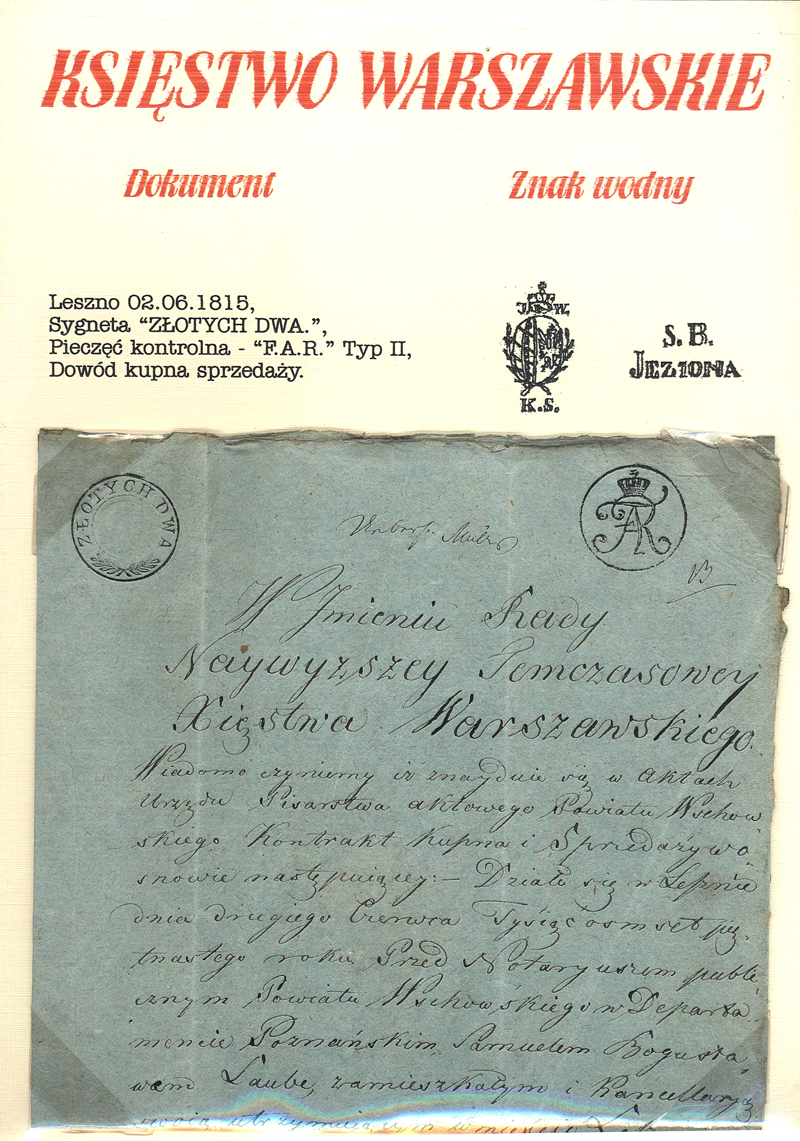 KSIĘSTWO WARSZAWSKIE
Dokument
Znak wodny
Leszno 02.06.1815,
Sygneta “ZŁOTYCH DWA.”,
Pieczęć kontrolna - “F.A.R.” Typ II,
Dowód kupna sprzedaży.
W.
K.S.
S.B.
JEZIONA
ZŁOTYCH DWA
FAR
W Jmieniu Rady
Naywyższey Temczasowey
Xięstwa Warszawskiego.
Wiadomo czyniemy iż znayduie się w Aktach
Urzędu Pisarstwa aktowego Powiatu Wschow
skiego Kontrakt Kupna i Sprzedaży wo
snowie następuiącey: – Działo się w Lesznie
dnia drugiego Czerwca Tysiąc osmset pię
tnastego roku Przed Notaryuszem publi
cznym Powiatu Wschowskiego w Departa
mencie Poznańskim Samuelem Bogusła
wem Laube, zamieszkałym i Kancellaryą
swoią utrzymuiącym w mieście